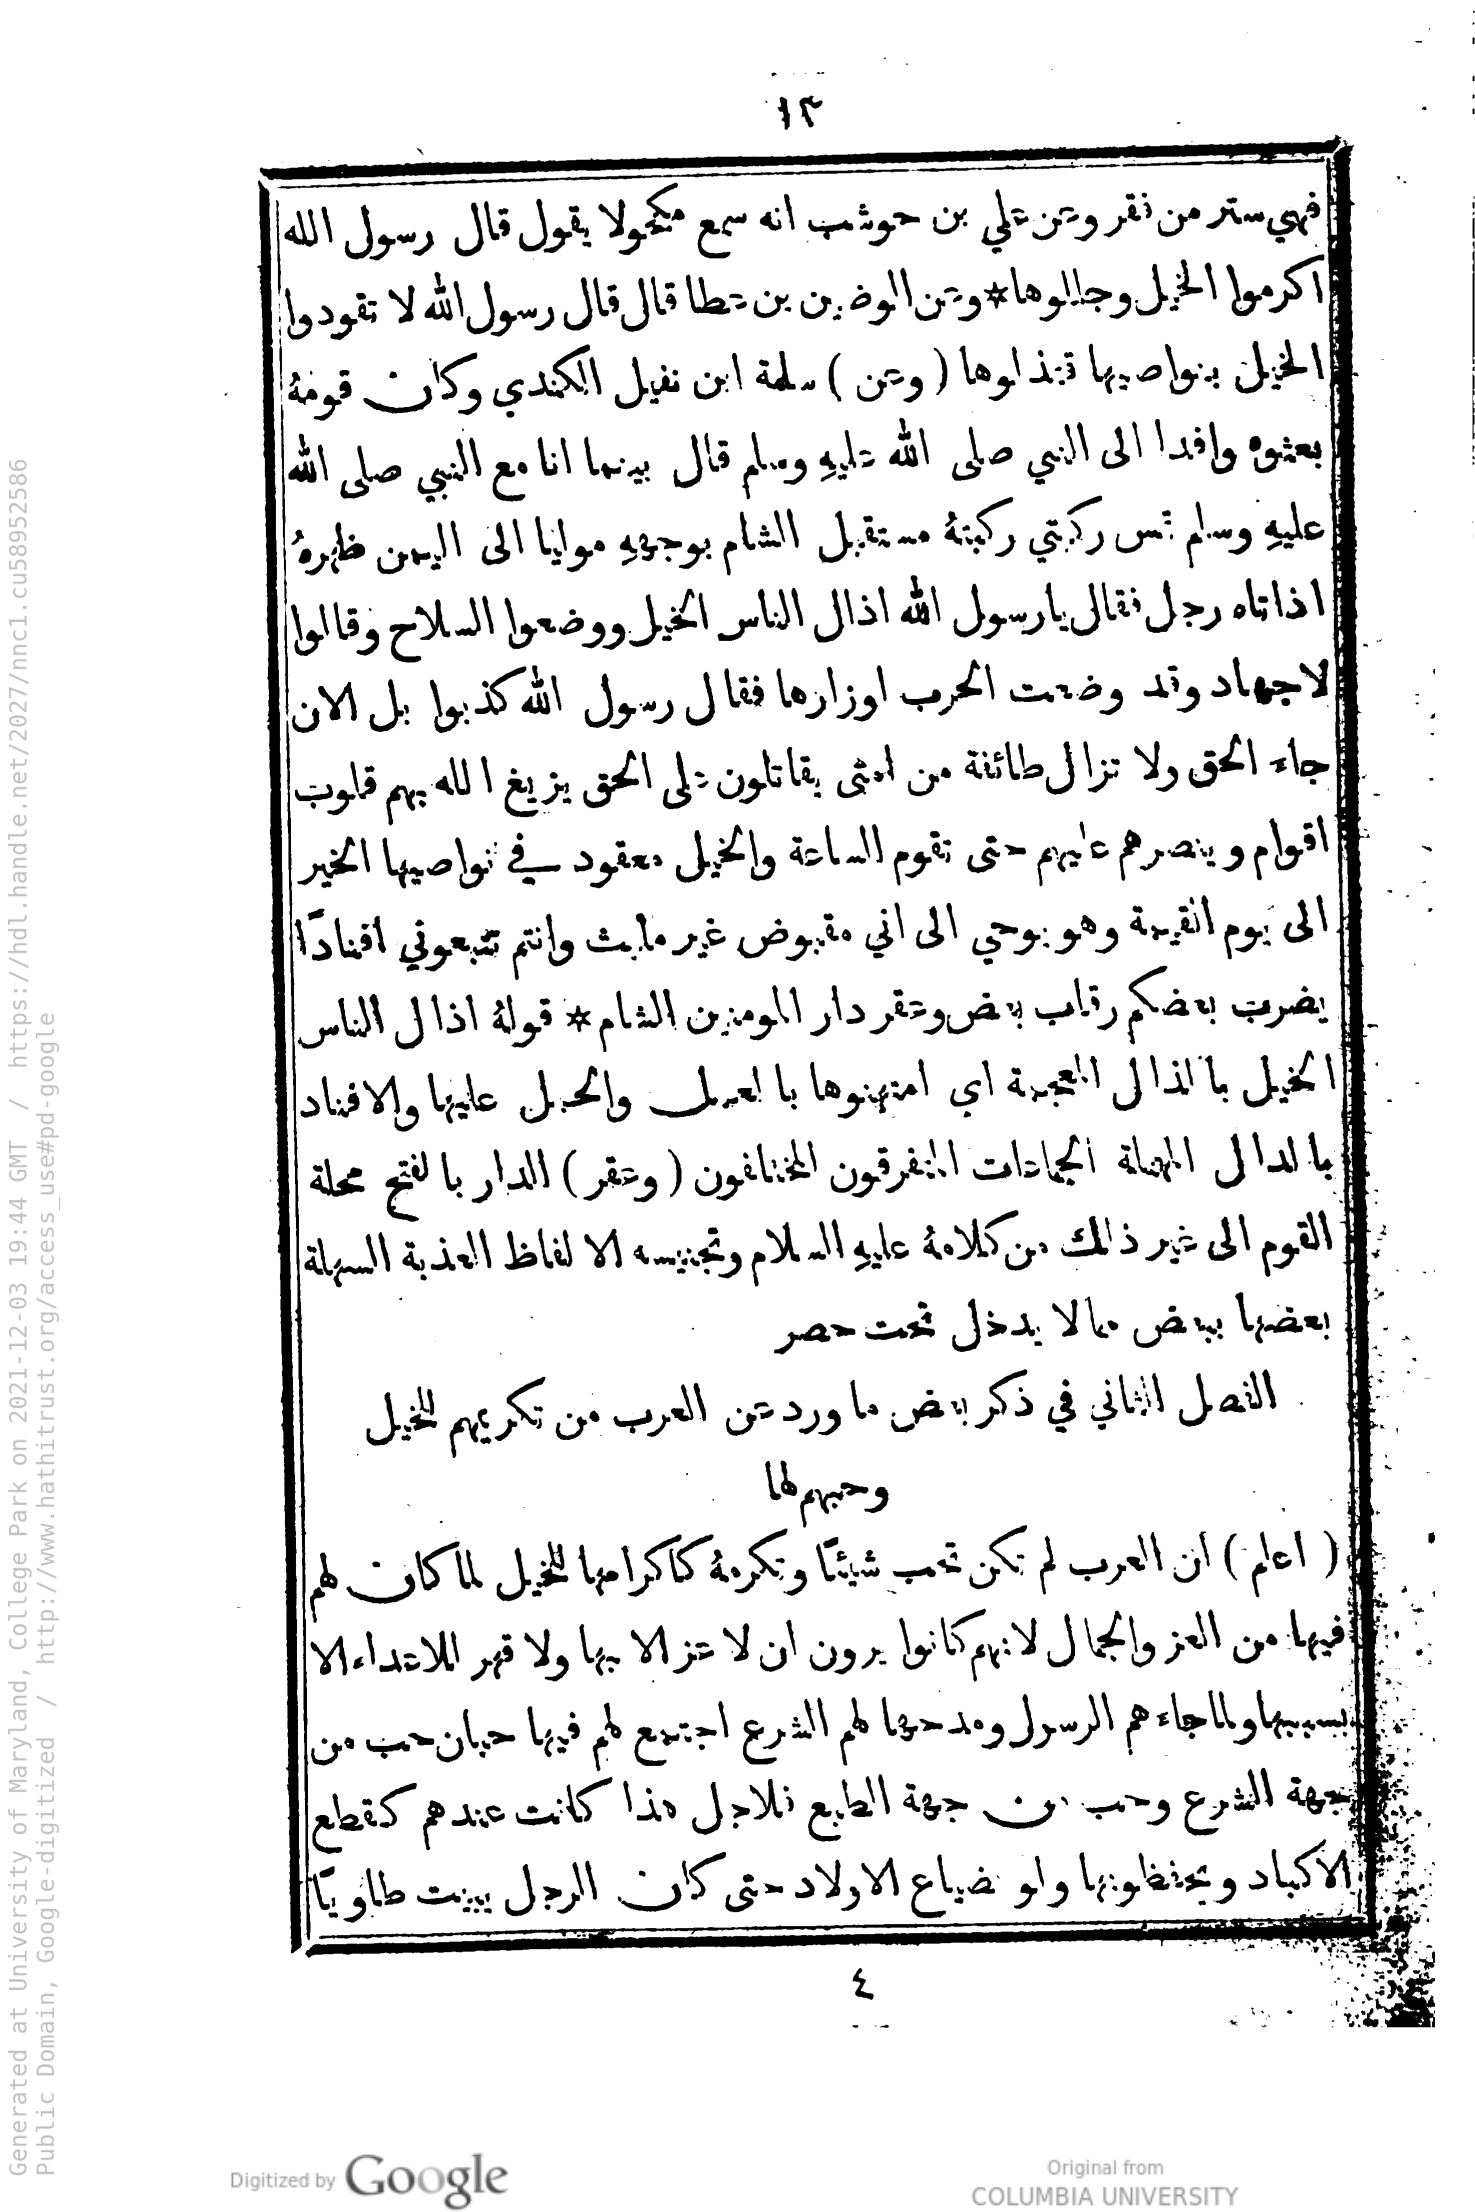 ١٣
فهي ستر من فقر وعن علي بن حوشب انه سمع مكحولا يقول قال رسول الله
اكرموا الخيل وجللوها * وعن الوضين بن عطا قال قال رسول الله لا تقودوا
الخيل بنواصيها تتذلوها ( وعن ) سلمة ابن نفيل الكندي وكان قومهُ
بعثوه وافدا الى النبي صلى الله عليهِ وسلم قال بينما انا مع النبي صلى الله
عليهِ وسلم تمس ركبتي ركبتهُ مستقبل الشام بوجههِ موليا الى اليمن ظهرهُ
اذ اتاه رجل فقال يا رسول الله اذال الناس الخيل ووضعوا السلاح وقالوا
لا جهاد وقد وضعت الحرب اوزارها فقال رسول الله كذبوا بل الان
جاء الحق ولا تزال طائفة من امتى يقاتلون على الحق يزيغ الله بهم قلوب
اقوام وينصرهم عليهم حتى تقوم الساعة والخيل معقود في نواصيها الخير
الى يوم القيمة وهو يوحي الى اني مقبوض غير ملبث وانتم تتبعوني افنادًا
يضرب بعضكم رقاب بعض وعقر دار المومنين الشام * قولهُ اذال الناس
الخيل بالذال المعجمة اي امتهنوها بالعمل والحمل عليها والافناد
بالدال المهملة الجماعات المتفرقون المختلفون ( وعقر ) الدار بالفتح محلة
القوم الى غير ذلك من كلامهُ عليهِ السلام وتجنيسه الالفاظ العذبة السهلة
بعضها ببعض مما لا يدخل تحت حصر
الفصل الثاني في ذكر بعض ما ورد عن العرب من تكريمهم للخيل
وحبهم لها
( اعلم ) ان العرب لم تكن تحب شيئًا وتكرمهُ كاكرامها للخيل لما كان لهم
فيها من العز والجمال لانهم كانوا يرون ان لا عز الا بها ولا قهر للاعداء الا
بسببها ولما جاءهم الرسول ومدحها لهم الشرع اجتمع لهم فيها حبان حب من
جهة الشرع وحب من جهة الطبع فلاجل هذا كانت عندهم كقطع
الاكباد ويحتفظونها ولو ضياع الاولاد حتى كان الرجل يبيت طاويًا
٤
Generated at University of Maryland, College Park on 2021-12-03 19:44 GMT / https://hdl.handle.net/2027/nnc1.cu58952586
Public Domain, Google-digitized / http://www.hathitrust.org/access_use#pd-google
Digitized by Google
Original from
COLUMBIA UNIVERSITY